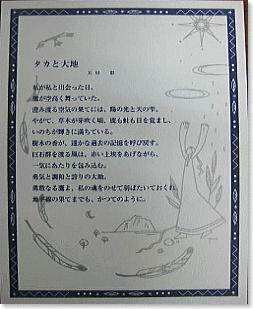 タカと大地
私が私と出会った日、
鷹が空高く舞っていた。
澄み渡る空気の果てには、陽の光と天の雫。
やがて、草木が芽吹く頃、鹿も虹も目を覚まし、
いのちが輝きに満ちている。
樹木の香が、遥かな過去の記憶を呼び戻す。
巨石群を渡る風は、赤い土埃をあげながら、
一気にあたりを包み込む。
勇気と調和と誇りの大地。
勇敢なる鷹よ、私の魂をのせて羽ばたいておくれ、
地平線の果てまでも、かつてのように。